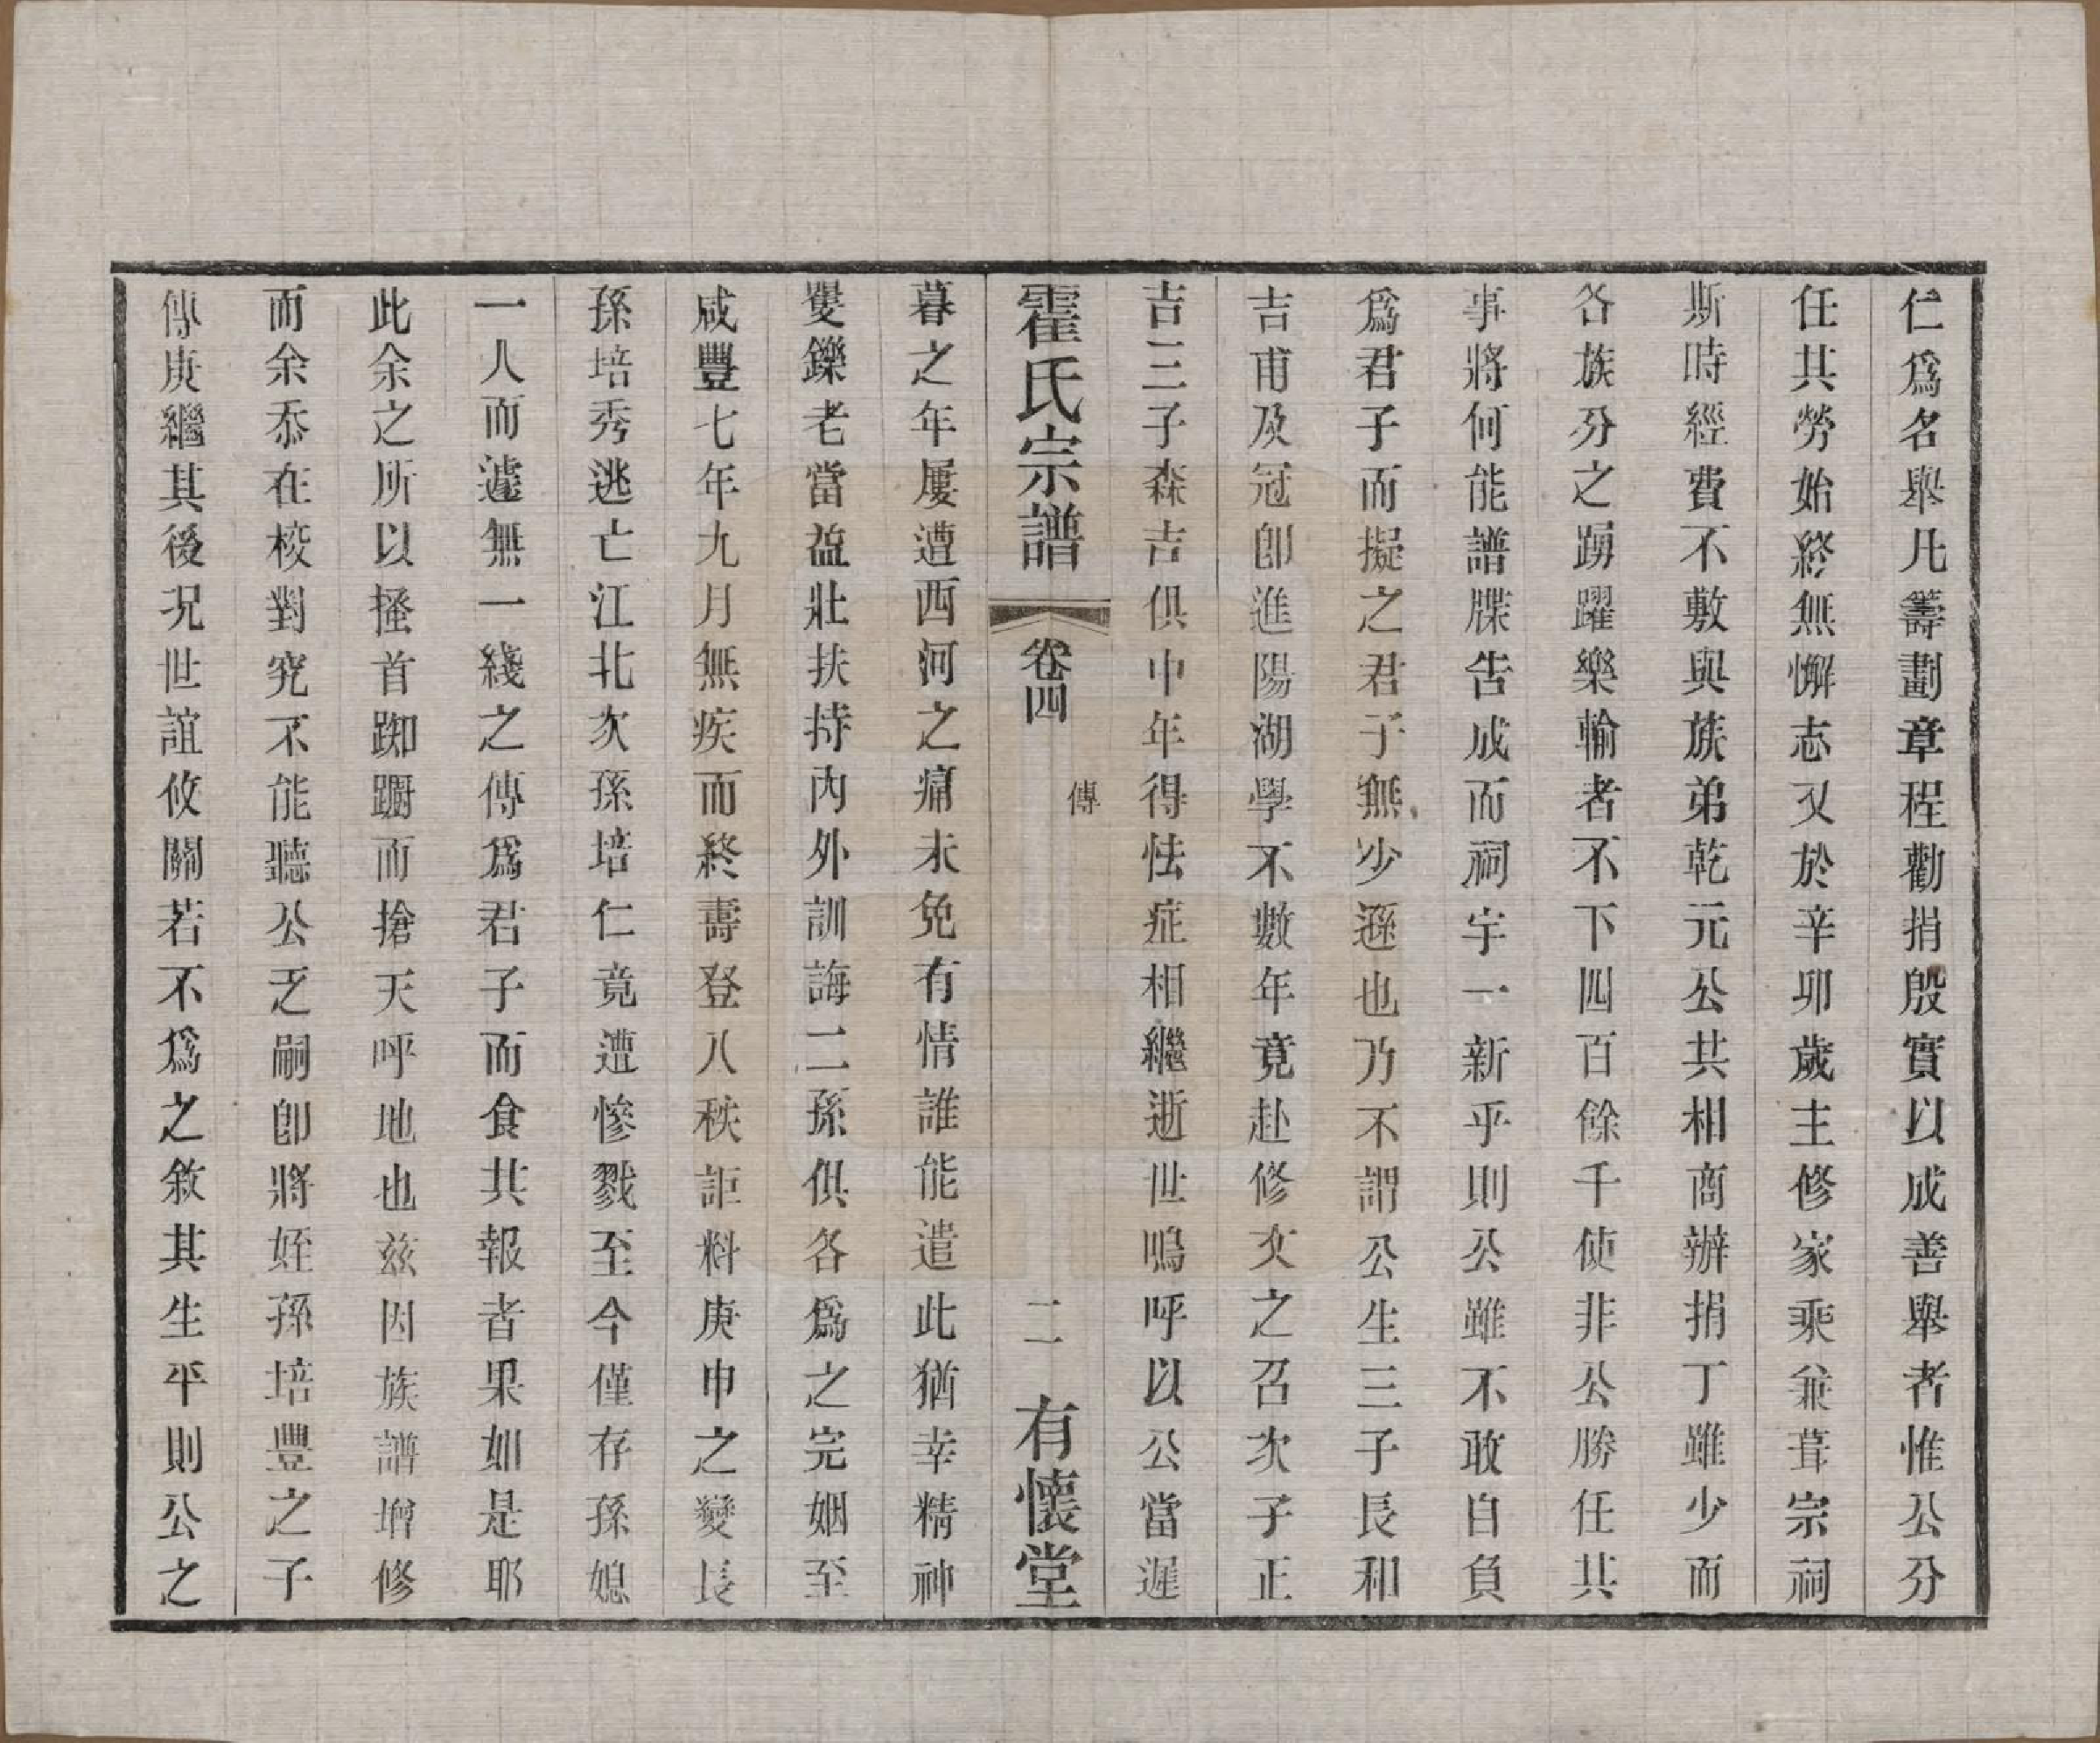 仁爲名舉凡籌劃章程勸捐殷實以成善舉者惟公分
任其勞始終無懈志又於辛卯歲主修家乘兼葺宗祠
斯時經費不敷與族弟乾元公共相商辦捐丁雖少而
各族分之踴躍樂輸者不下四百餘千使非公勝任其
事將何能譜牒告成而祠宇一新乎則公雖不敢自負
爲君子而擬之君子無少遜也乃不謂公生三子長和
吉甫及冠卽進陽湖學不數年竟赴修文之召次子正
吉三子森吉俱中年得怯症相繼逝世嗚呼以公當遲
霍氏宗譜
卷四
傳
二
有懷堂
暮之年屢遭西河之痛未免有情誰能遣此猶幸精神
矍鑠老當益壯扶持內外訓誨二孫俱各爲之完姻至
咸豐七年九月無疾而終壽登八秩詎料庚申之變長
孫培秀逃亡江北次孫培仁竟遭慘戮至今僅存孫媳
一人而遽無一綫之傳爲君子而食其報者果如是耶
此余之所以搔首踟躕而搶天呼地也茲因族譜增修
而余忝在校對究不能聽公乏嗣卽將姪孫培豐之子
傳庚繼其後况世誼攸關若不爲之敘其生平則公之